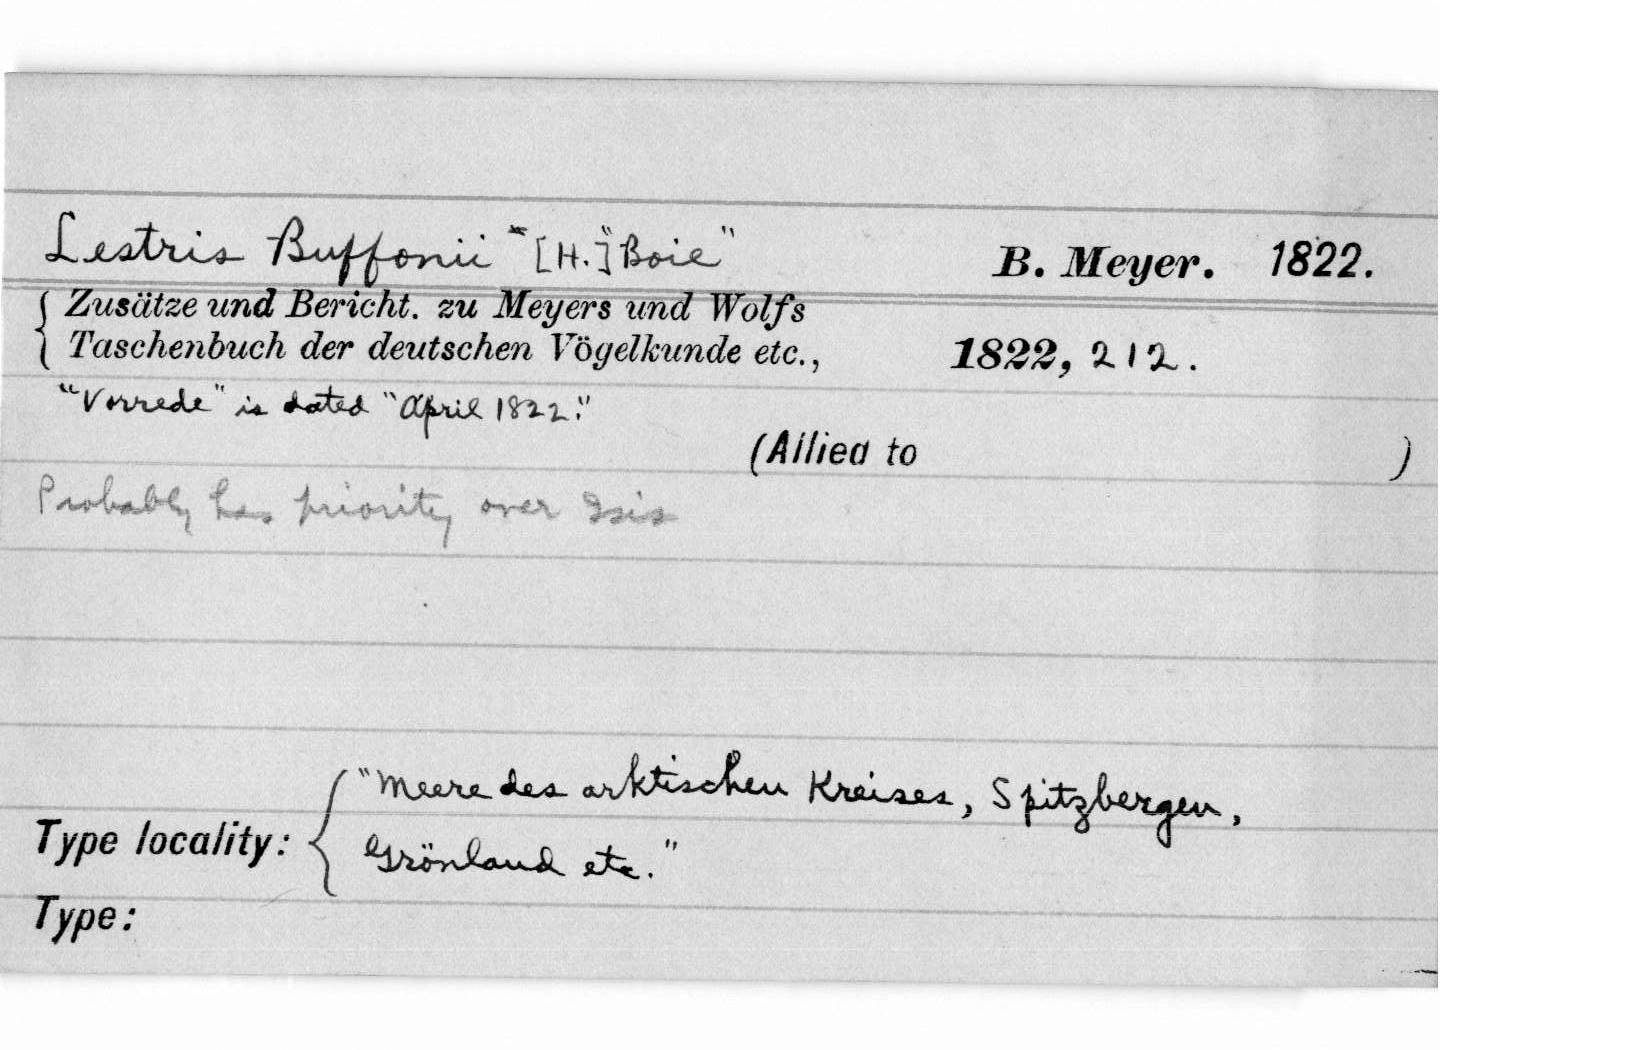 Lestris Buffonii "[H.] Boie" B. Meyer. 1822.
Zusätze und Bericht. zu Meyers und Wolfs
Taschenbuch der deutschen Vögelkunde etc., 1822, 212.
"Vorrede" is dated "April 1822."
(Allied to )
Probably has priority over Isis
Type locality: "Meere des arktischen Kreises, Spitzbergen,
Grönland etc."
Type: